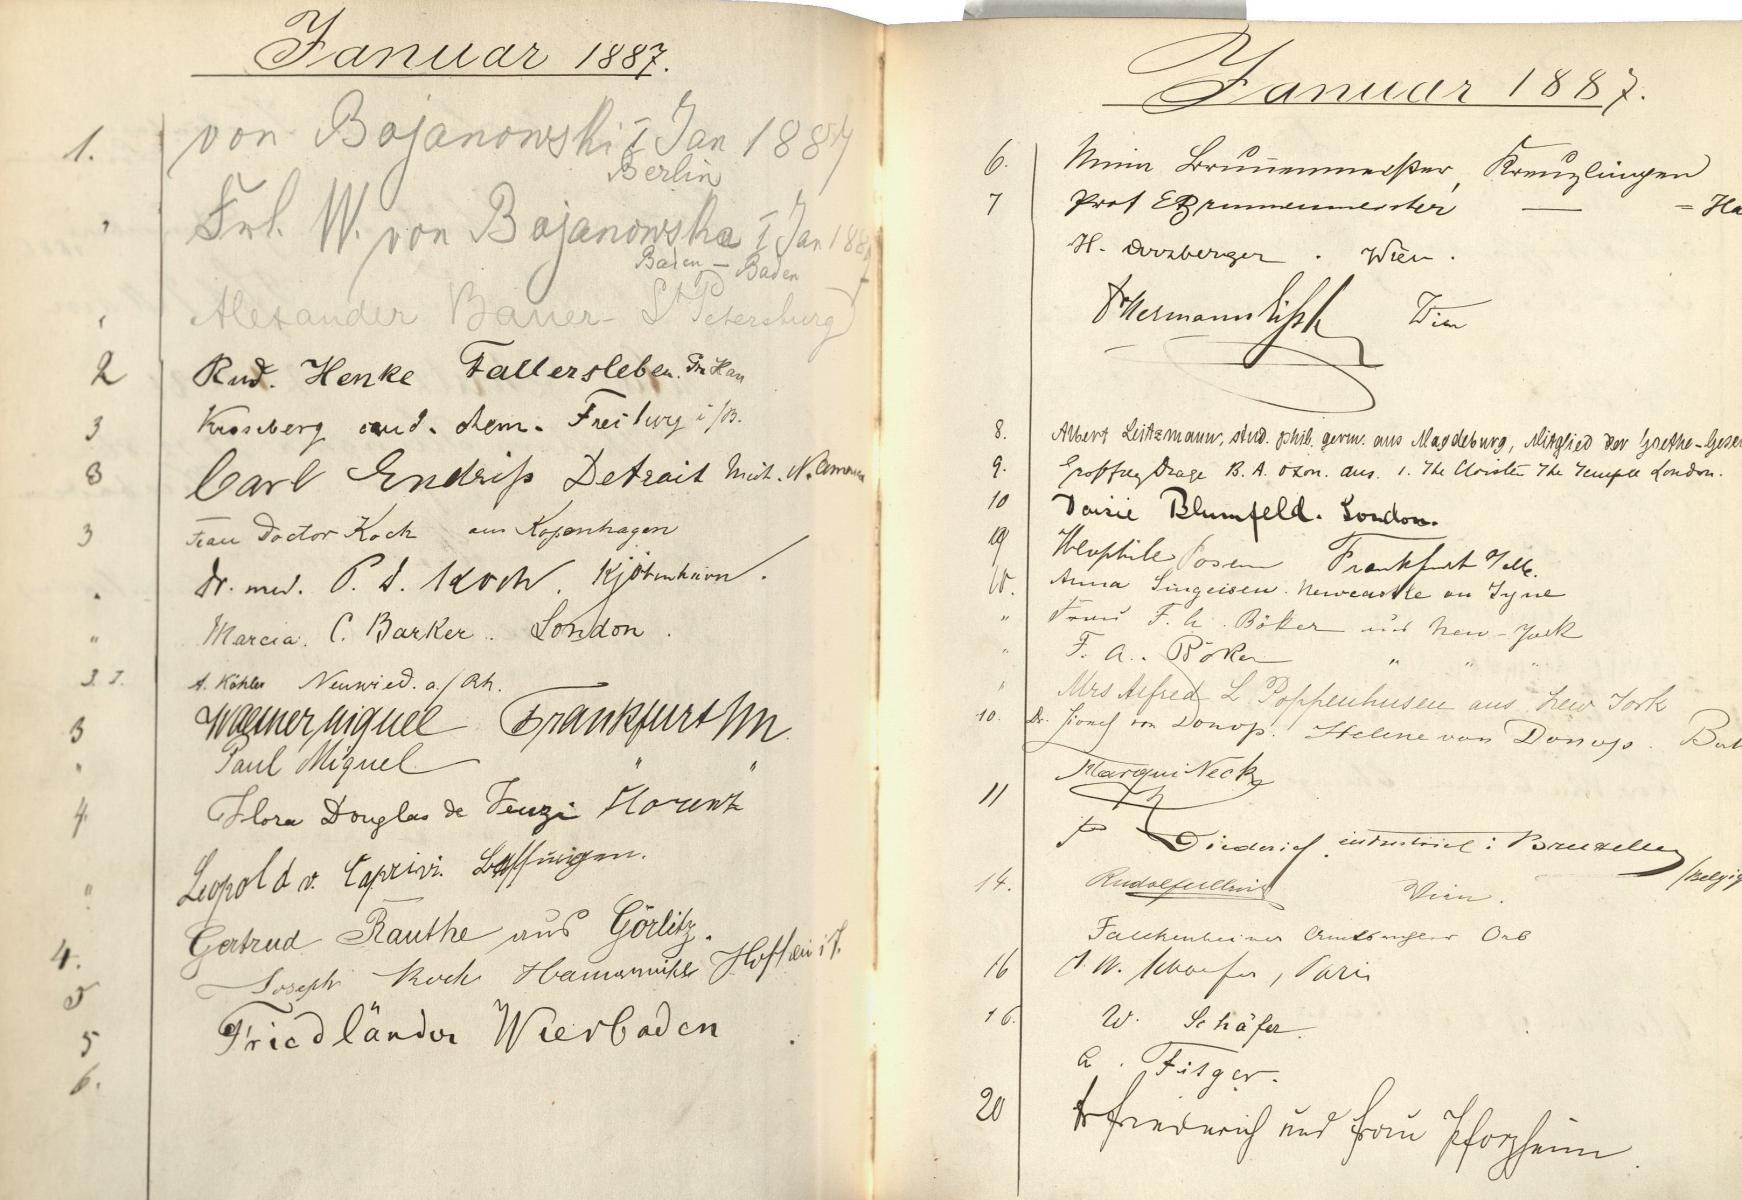 Januar 1887.
1. von Bojanowski I Jan 1887
Berlin
" Frl. W. von Bojanowska I Jan 188
Baden-Baden
" Alexander Bauer - St Petersburg
2 Rud. Henke Fallersleben. Pr Han
3 cand. chem. Freiburg i/B.
3 Carl Endriß Detroit Mich. N. Amerika
3 Frau Doctor Koch aus Kopenhagen
" Dr. med. P. D. Koch. Kjöbenhavn.
" Marcia. C. Barker. London.
3. I. A. Köhler Neuwied. a/Rh.
3 Miquel Frankfurt M
" Paul Miquel " "
4 Flora Douglas de Fenzi Florenz
" Leopold v. Caprivi.
4. Gertrud Rauthe aus Görlitz.
5 Joseph Koch
5 Friedländer Wiesbaden
6.
Januar 1887.
6. Brunnenmeister, Kreuzlingen
7 Prof E Brunnenmeister — = Ha
H. Wien.
Dr Hermann Wien
8. Albert Leitzmann, stud. phil. germ. aus Magdeburg, Mitglied der Goethe-Gesel
9. Geoffrey Drage B. A. Oxon. aus. 1. The Cloisters The Temple London.
10 Daisie Blumfeld. London.
10 Theophile Posen Frankfurt
10. Anna Singeisen. Newcastle on Tyne
" Frau F. A. Böker aus New-York
" F. A. Böker " " "
" Mrs Alfred L Poppenhusen aus New York
10. Dr. Lionel von Donop. Helene von Donop. Berl
11 Diederich industriel: Bruxelles
/Belgiq
14. Wien.
Falckenheiner
16 Schaefer, Paris
16. W. Schäfer.
A. Fitger.
20 Dr Friedrich und Frau Pforzheim.